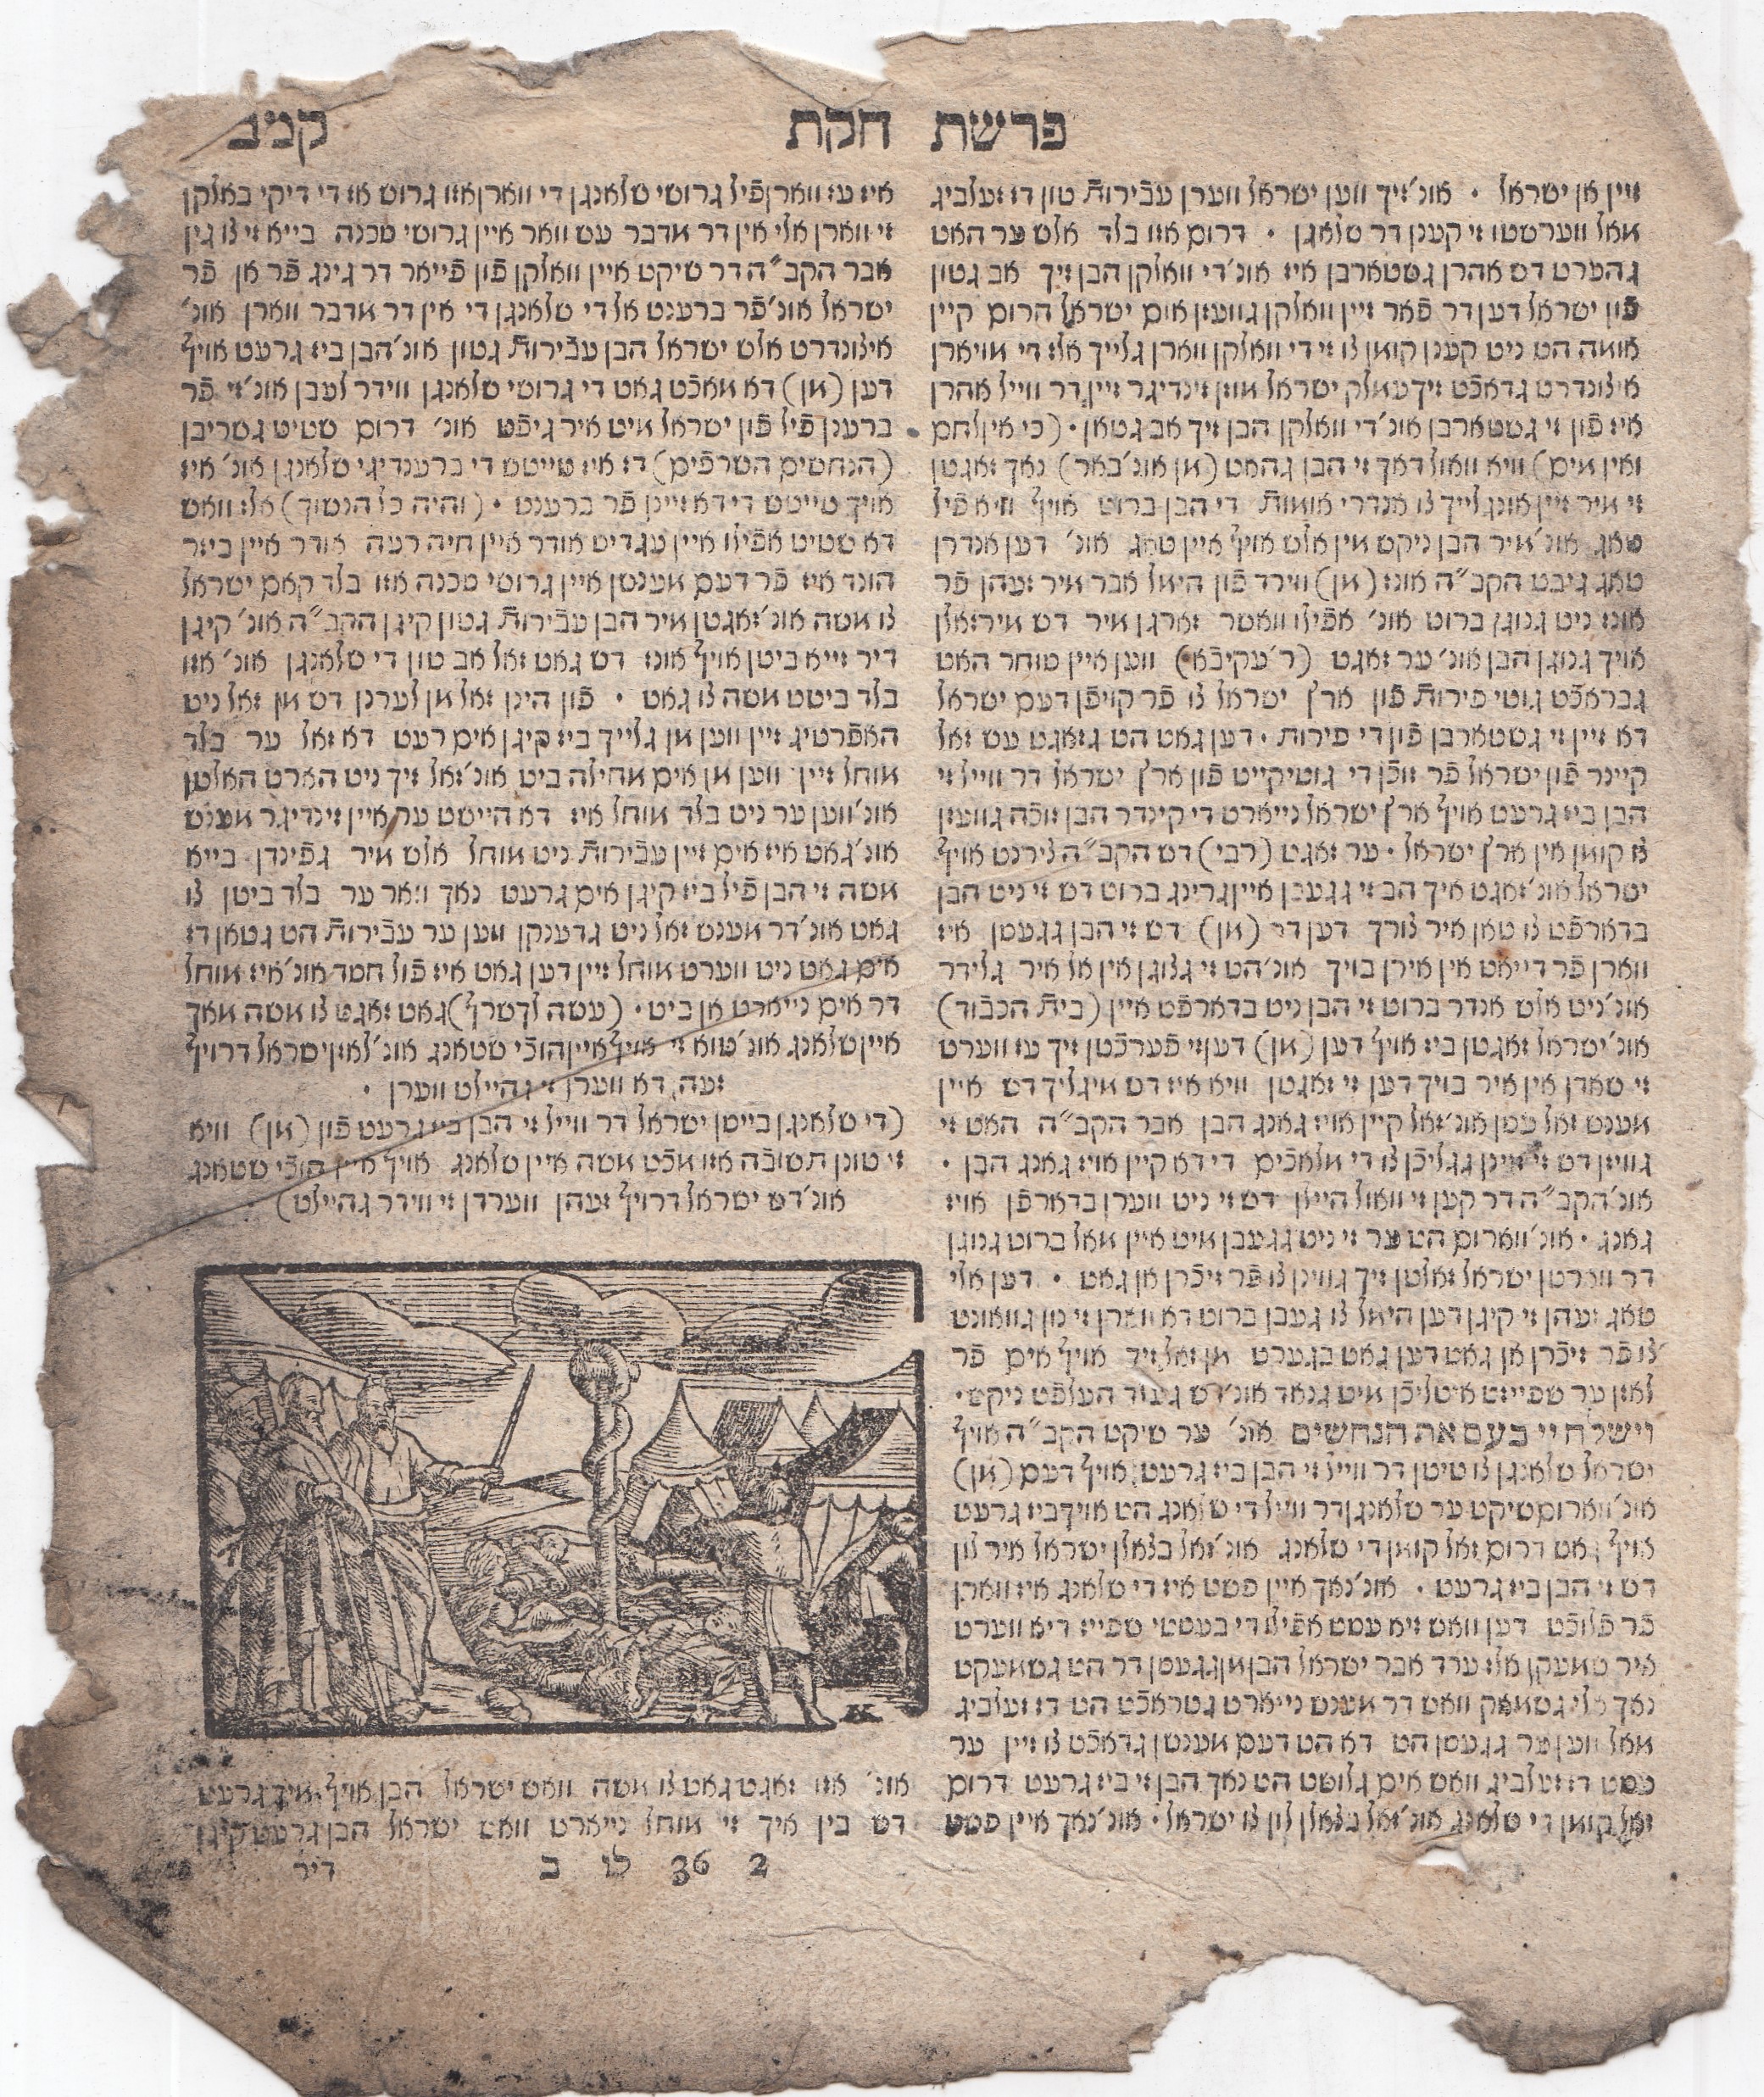 פרשת חקת קמב
זיין אן ישראל • אונ׳ זיך ווען ישראל ווערן עבֿירות טון דז זעלביג
מאל ווערשטו זי קענן דר שלאגן • דרום אזו בלד אלש ער האט
גהערט דש אהרן גשטארבן איז אונ׳ די וואלקן הבן זיך אב גטון
פֿון ישראל דען דר פֿאר זיין וואלקן גוועזן אום ישראל הרום קיין
אומה הט ניט קענן קומן צו זי די וואלקן ווארן גלייך אלז די מויארן
איצונדרט גדאכֿט זיך עמלק ישראל מוזן זינדיגר זיין דר ווייל אהרן
איז פֿון זי גשטארבן אונ׳ די וואלקן הבן זיך אב גטאן • (כי אין לחם
ואין מים) וויא וואול דאך זי הבן גהאט (מן אונ׳ באר) נאך זאגטן
זי מיר זיין אונגלייך צו אנדרי אומות די הבן ברוט אויף וויא פֿיל
טאג אונ׳ מיר הבן ניקש מין אלש אויף איין טאג אונ׳ דען אנדרן
טאג גיבט הקב״ה אונז (מן) ווירד פֿון הימל אבר מיר זעהן פֿר
אונז ניט גנוגן ברוט אונ׳ אפֿילו וואשר זארגן מיר דש מיר זאלן
אויך גנוגן הבן אונ׳ ער זאגט (ר׳ עקיבֿא) ווען איין סוחר האט
גבראכֿט גוטי פירות פֿון ארץ ישראל צו פֿר קויפֿן דעם ישראל
דא זיין זי גשטארבן פֿון די פירות • דען גאט הט גזאגט עש זאל
קיינר פֿון ישראל פֿר זוכֿן די גוטיקייט פֿון ארץ ישראל דר ווייל זי
הבן ביז גרעט אויף ארץ ישראל נייארט די קינדר הבן זוכֿה גוועזן
צו קומן אין ארץ ישראל • ער זאגט (רבי) דש הקב״ה צירנט אויף
ישראל אונ׳ זאגט איך הב זי געבן איין גרינג ברוט דש זי ניט הבן
בדארפֿט צו טאן איר צורך דען דר (מן) דש זי הבן געסן איז
ווארן פֿר דייאט אין אירן בויך אונ׳ הט זי גצוגן אין אל איר גלידר
אונ׳ ניט אלש אנדר ברוט זי הבן ניט בדארפֿט איין (בית הכבֿוד)
אונ׳ ישראל זאגטן ביז אויף דען (מן) דען זי פֿערכֿטן זיך עז ווערט
זי שאדן אין איר בויך דען זי זאגטן וויא איז דש מיגליך דש איין
מענש זאל עסן אונ׳ זאל קיין אויז גאנג הבן אבר הקב״ה האט זי
גוויזן דש זי זיינן גגליכֿן צו די מלאכֿים די דא קיין אויז גאנג הבן •
אונ׳ הקב״ה דר קען זי וואול היילן דש זי ניט ווערן בדארפֿן אויז
גאנג • אונ׳ ווארום הט ער זי ניט געבן מיט איין מאל ברוט גנוגן
דר ווארטן ישראל זאלטן זיך גווינן צו פֿר זיכֿרן אן גאט • דען אלי
טאג זעהן זי קיגן דען הימל צו געבן ברוט דא ווארן זי נון גוואונט
צו פֿר זיכֿרן אן גאט דען גאט בגערט מן זאל זיך אויף אים פֿר
לאזן ער שפייזט איטליכֿן מיט גנאד אונ׳ דש גיצד העלפֿט ניקש •
וישלח יי בעם את הנחשים אונ׳ ער שיקט הקב״ה אויף
ישראל שלאנגן צו טיטן דר ווייל זי הבן ביז גרעט אויף דעם (מן)
אונ׳ ווארום שיקט ער שלאנגן דר ווייל די שלאנג הט אויך ביז גרעט
אויף גאט דרום זאל קומן די שלאנג אונ׳ זאל בצאלן ישראל איר לון
דש זי הבן ביז גרעט • אונ׳ נאך איין פשט איז די שלאנג איז ווארן
פֿר פֿלוכֿט דען וואש זיא עסט אפֿילו די בעסטי שפייז דיא ווערט
איר שמעקן אלז ערד אבר ישראל הבן מן געסן דר הט גשמעקט
נאך אלי גשמאק וואש דר מענש נייארט גטראכֿט הט דז זעלביג
מאל ווען ער געסן הט דא הט דעם מענשן גדאכֿט צו זיין ער
עסט דז זעלביג וואש אים גלושט הט נאך הבן זי ביז גרעט דרום
זאל קומן די שלאנג אונ׳ זאל בצאלן לון צו ישראל • אונ׳ נאך איין פשט
איז עז ווארן פֿיל גרוסי שלאנגן די ווארן אזו גרוס אז די דיקי באלקן
זי ווארן אלי אין דר מדבר עש וואר איין גרוסי סכנה בייא זי צו גין
אבר הקב״ה דר שיקט איין וואלקן פֿון פֿייאר דר גינג פֿר אן פֿר
ישראל אונ׳ פֿר ברענט אל די שלאנגן די אין דר מדבר ווארן אונ׳
איצונדרט אלש ישראל הבן עבֿירות גטון אונ׳ הבן ביז גרעט אויף
דען (מן) דא מאכֿט גאט די גרוסי שלאנגן ווידר לעבן אונ׳ זי פֿר
ברענן פֿיל פֿון ישראל מיט איר גיפֿט אונ׳ דרום שטיט גשריבן
(הנחשים השרפֿים) דז איז טייטש די ברענדיגי שלאנגן אונ׳ איז
אויך טייטש די דא זיינן פֿר ברענט • (והיה כל הנשוך) אלז וואש
דא שטיט אפֿילו איין עגדיש אודר איין חיה רעה אודר איין ביזר
הונד איז פֿר דעם מענשן איין גרוסי סכנה אזו בלד קאם ישראל
צו משה אונ׳ זאגטן מיר הבן עבֿירות גטון קיגן הקב״ה אונ׳ קיגן
דיר זייא ביטן אויף אונז דש גאט זאל אב טון די שלאנגן אונ׳ אזו
בלד ביטט משה צו גאט • פֿון הינן זאל מן לערנן דש מן זאל ניט
האפֿרטיג זיין ווען מן גלייך ביז קיגן אים רעט דא זאל ער בלד
מוחל זיין ווען מן אים מחילה ביט אונ׳ זאל זיך ניט הארט האלטן
אונ׳ ווען ער ניט בלד מוחל איז דא הייסט ער איין זינדיגר מענש
אונ׳ גאט איז אים זיין עבֿירות ניט מוחל אלש מיר גפֿינדן בייא
משה זי הבן פֿיל ביז קיגן אים גרעט נאך וואר ער בלד ביטן צו
גאט אונ׳ דר מענש זאל ניט גדענקן ווען ער עבֿירות הט גטאן דז
אים גאט ניט ווערט מוחל זיין דען גאט איז פֿול חסד אונ׳ איז מוחל
דר אים נייארט אן ביט • (עשה לך שרף) גאט זאגט צו משה מאך
איין שלאנג אונ׳ טוא זי אויף איין הוכֿי שטאנג אונ׳ לאז ישראל דרויף
זעה, דא ווערן זי גהיילט ווערן •
(די שלאנגן בייסן ישראל דר ווייל זי הבן ביז גרעט פֿון (מן) וויא
זי טונן תשובֿה אזו מכֿט משה איין שלאנג אויף איין הוכֿי שטאנג
אונ׳ דש ישראל דרויף זעהן ווערדן זי ווידר גהיילט)
אונ׳ אזו זאגט גאט צו משה וואש ישראל הבן אויף מיך גרעט
דש בין איך זי מוחל נייארט וואש ישראל הבן גרעט קיגן
2 36 לו ב דיר